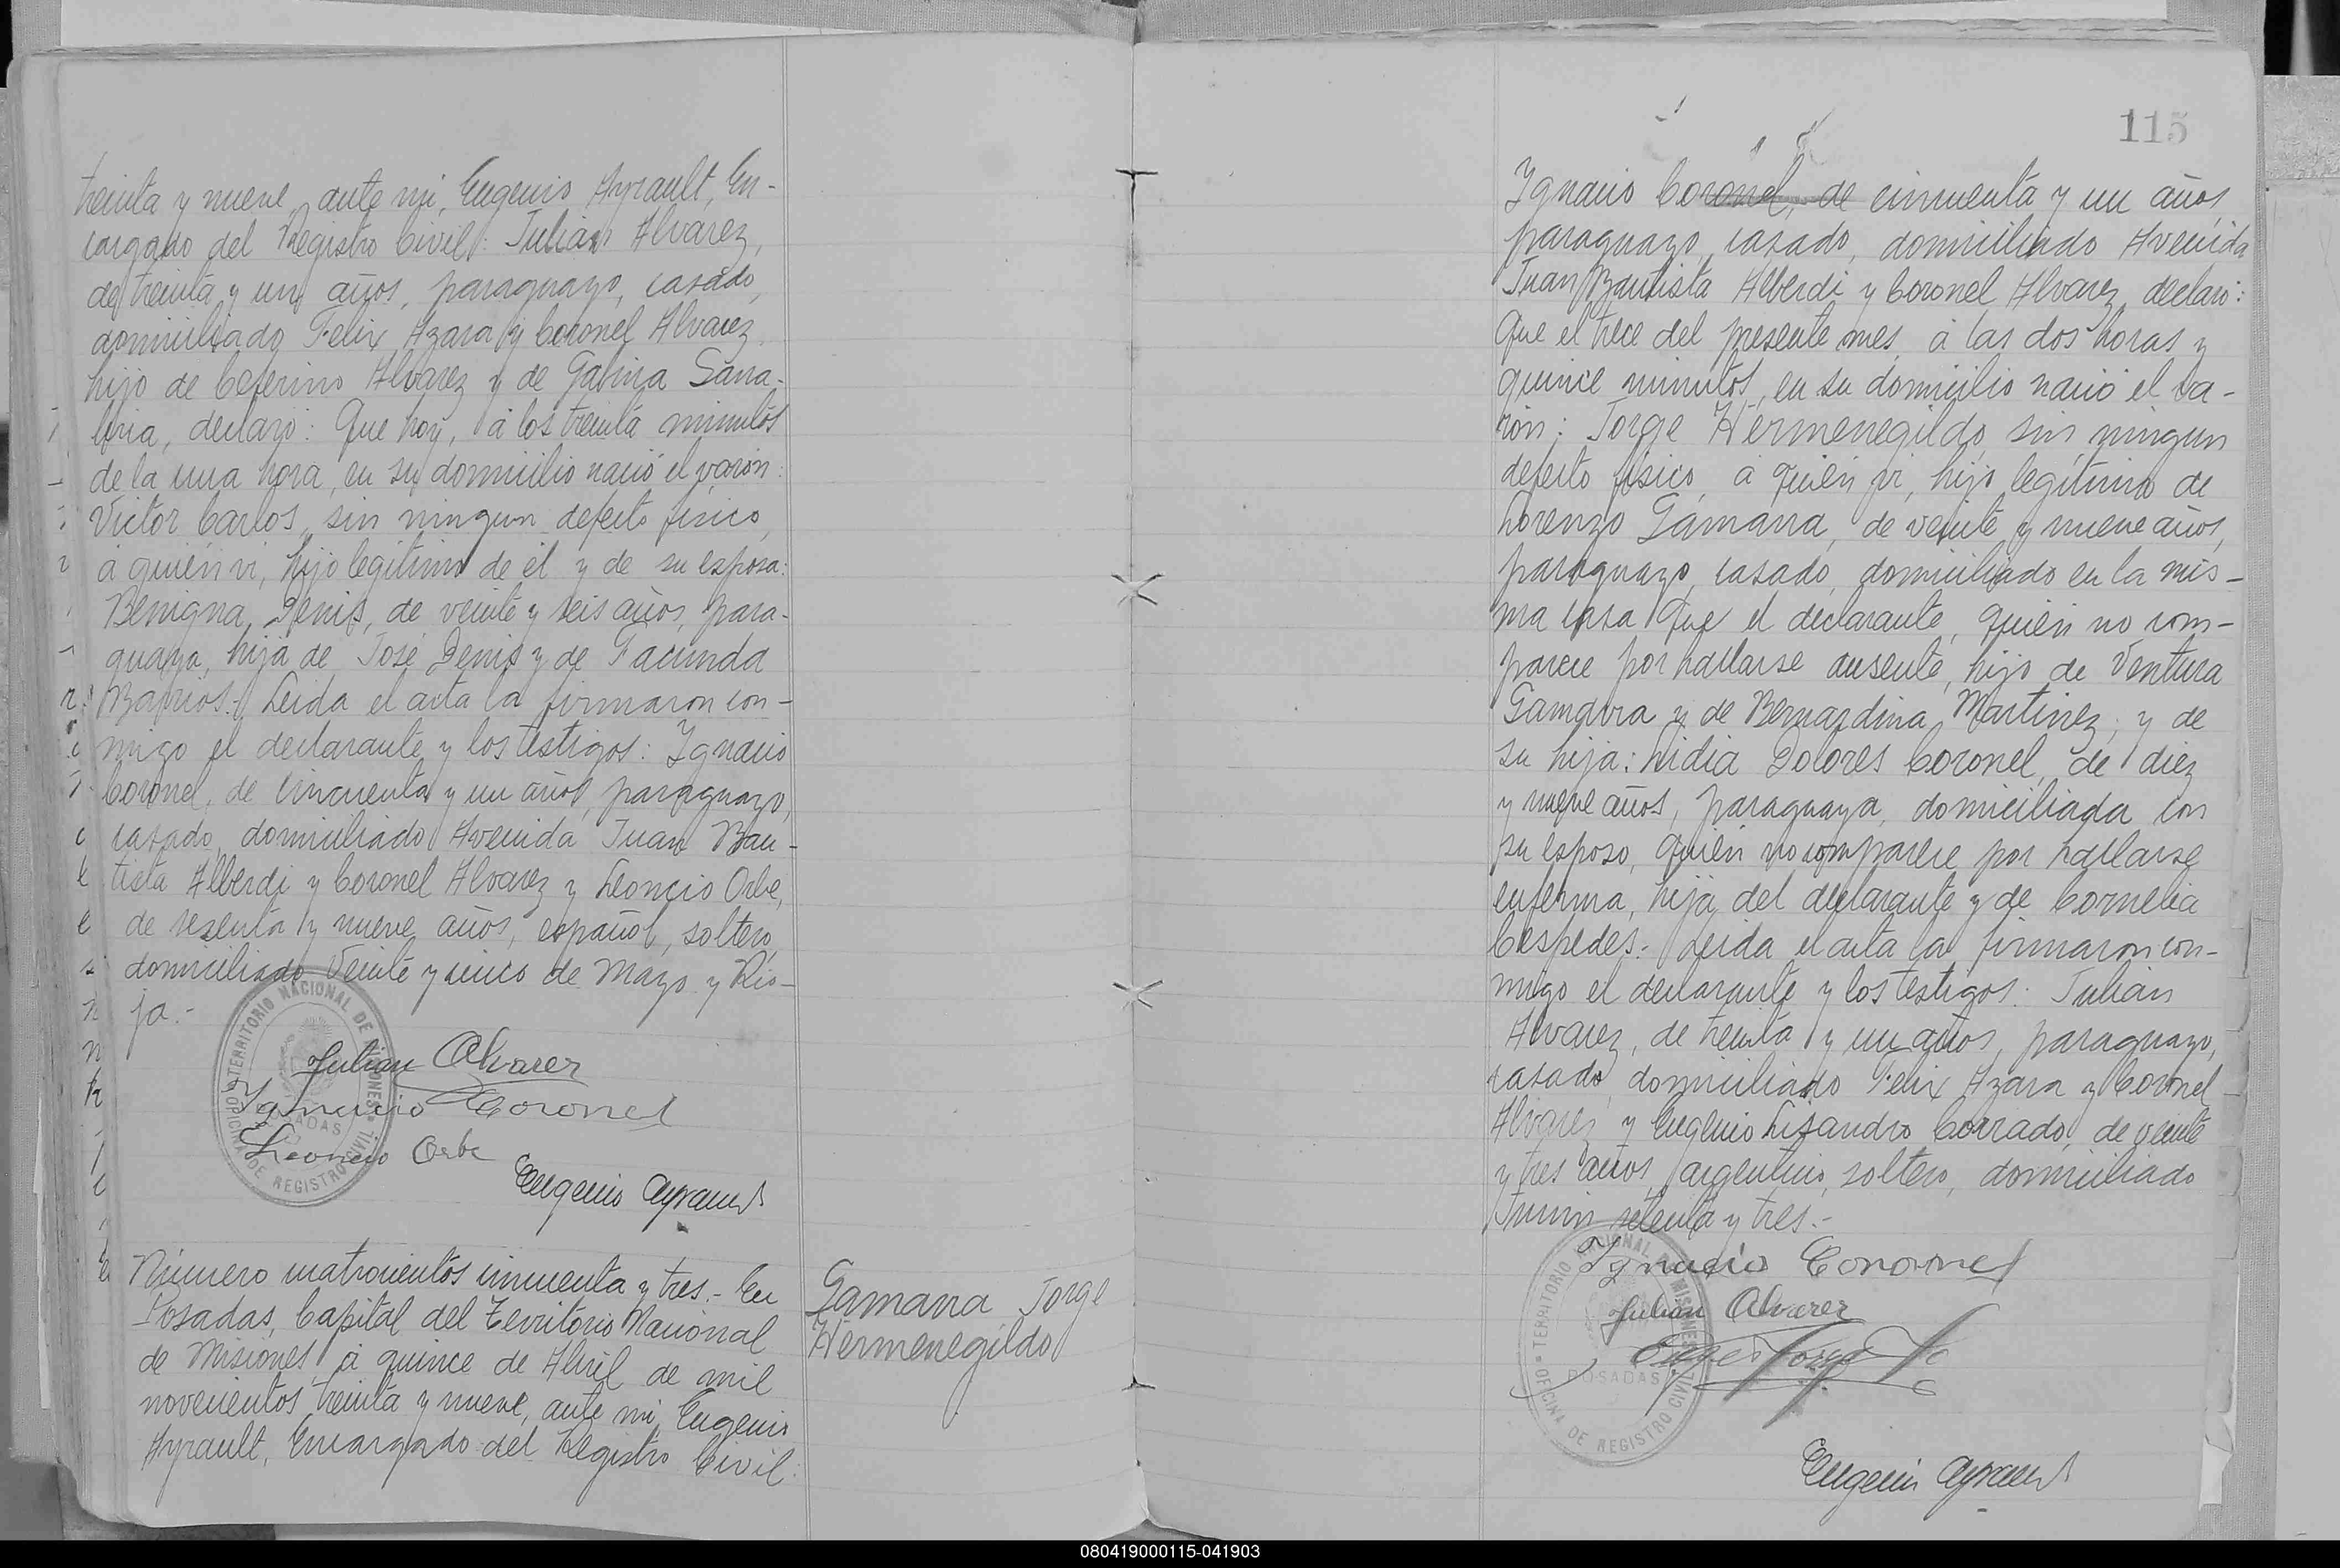 treinta y nueve, ante mi, Eugenio Ayrault, En-
cargado del Registro Civil: Julián Alvarez,
de treinta y un años, paraguayo, casado,
domiciliado Felix Azara y Coronel Alvarez,
hijo de Ceferino Alvarez y de Gabina Sana-
bria, declaró: Que hoy, á los treinta minutos
de la una hora, en su domicilio nació el varón:
Victor Carlos, sin ningun defecto fisico,
á quién vi, hijo legitimo de él y de su esposa:
Benigna Denis, de veinte y seis años, para-
guaya, hija de José Denis y de Facunda
Barrios.- Leida el acta la firmaron con-
migo el declarante y los testigos: Ignacio
Coronel, de cincuenta y un años, paraguayo,
casado, domiciliado Avenida Juan Bau-
tista Alberdi y Coronel Alvarez y Leoncio Orbe,
de sesenta y nueve años, español, soltero,
domiciliado Veinte y cinco de Mayo y Rio-
ja.-
TERRITORIO NACIONAL DE MISIONES
OFICINA DE REGISTRO CIVIL
POSADAS
Julian Alvarez
Ignacio Coronel
Leoncio Orbe
Eugenio Ayrault
Número cuatrocientos cincuenta y tres.- En
Posadas, Capital del Territorio Nacional
de Misiones, á quince de Abril de mil
novecientos treinta y nueve, ante mi, Eugenio
Ayrault, Encargado del Registro Civil:
Gamarra Jorge
Hermenegildo
115
Ignacio Coronel, de cincuenta y un años,
paraguayo, casado, domiciliado Avenida
Juan Bautista Alberdi y Coronel Alvarez, declaró:
Que el trece del presente mes, á las dos horas y
quince minutos, en su domicilio nació el va-
rón: Jorge Hermenegildo, sin ningun
defecto fisico, á quién vi, hijo legitimo de
Lorenzo Gamarra, de veinte y nueve años,
paraguayo, casado, domiciliado en la mis-
ma casa que el declarante, quién no com-
parece por hallarse ausente, hijo de Ventura
Gamarra y de Bernardina Martinez, y de
su hija: Lidia Dolores Coronel, de diez
y nueve años, paraguaya, domiciliada con
su esposo, quién no comparece por hallarse
enferma, hija del declarante y de Cornelia
Cespedes.- Leida el acta la firmaron con-
migo el declarante y los testigos: Julián
Alvarez, de treinta y un años, paraguayo,
casado, domiciliado Felix Azara y Coronel
Alvarez y Eugenio Lisandro Corrado, de veinte
y tres años, argentino, soltero, domiciliado
Junin setenta y tres.-
TERRITORIO NACIONAL DE MISIONES
OFICINA DE REGISTRO CIVIL
POSADAS
Ignacio Coronel
Julian Alvarez
Eugenio Ayrault
080419000115-041903